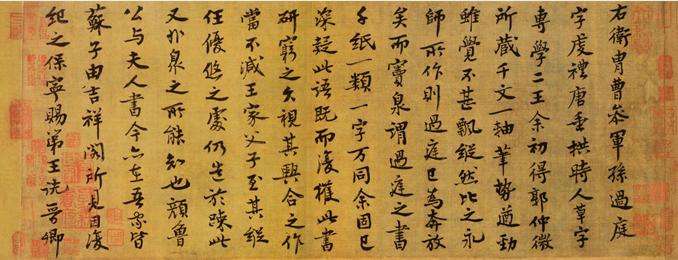 右衛冑曹參軍孫過庭
字虔禮唐垂拱時人草字
專學二王余初得郭仲微
所藏千文一抽筆勢遒勁
雖覺不甚飄縱然比之永
師所作則過庭已為奔放
矣而竇泉謂過庭之書
千紙一類一字万同余固已
深疑此語既而復獲此書
研窮之久視其興合之作
當不減王家父子至其縱
任優悠之處仍造於疎此
又非泉之所能知也顏魯
公與夫人書今亦在吾家皆
蘇子由吉祥閣所見因復
紀之保寧賜第王詵晉卿